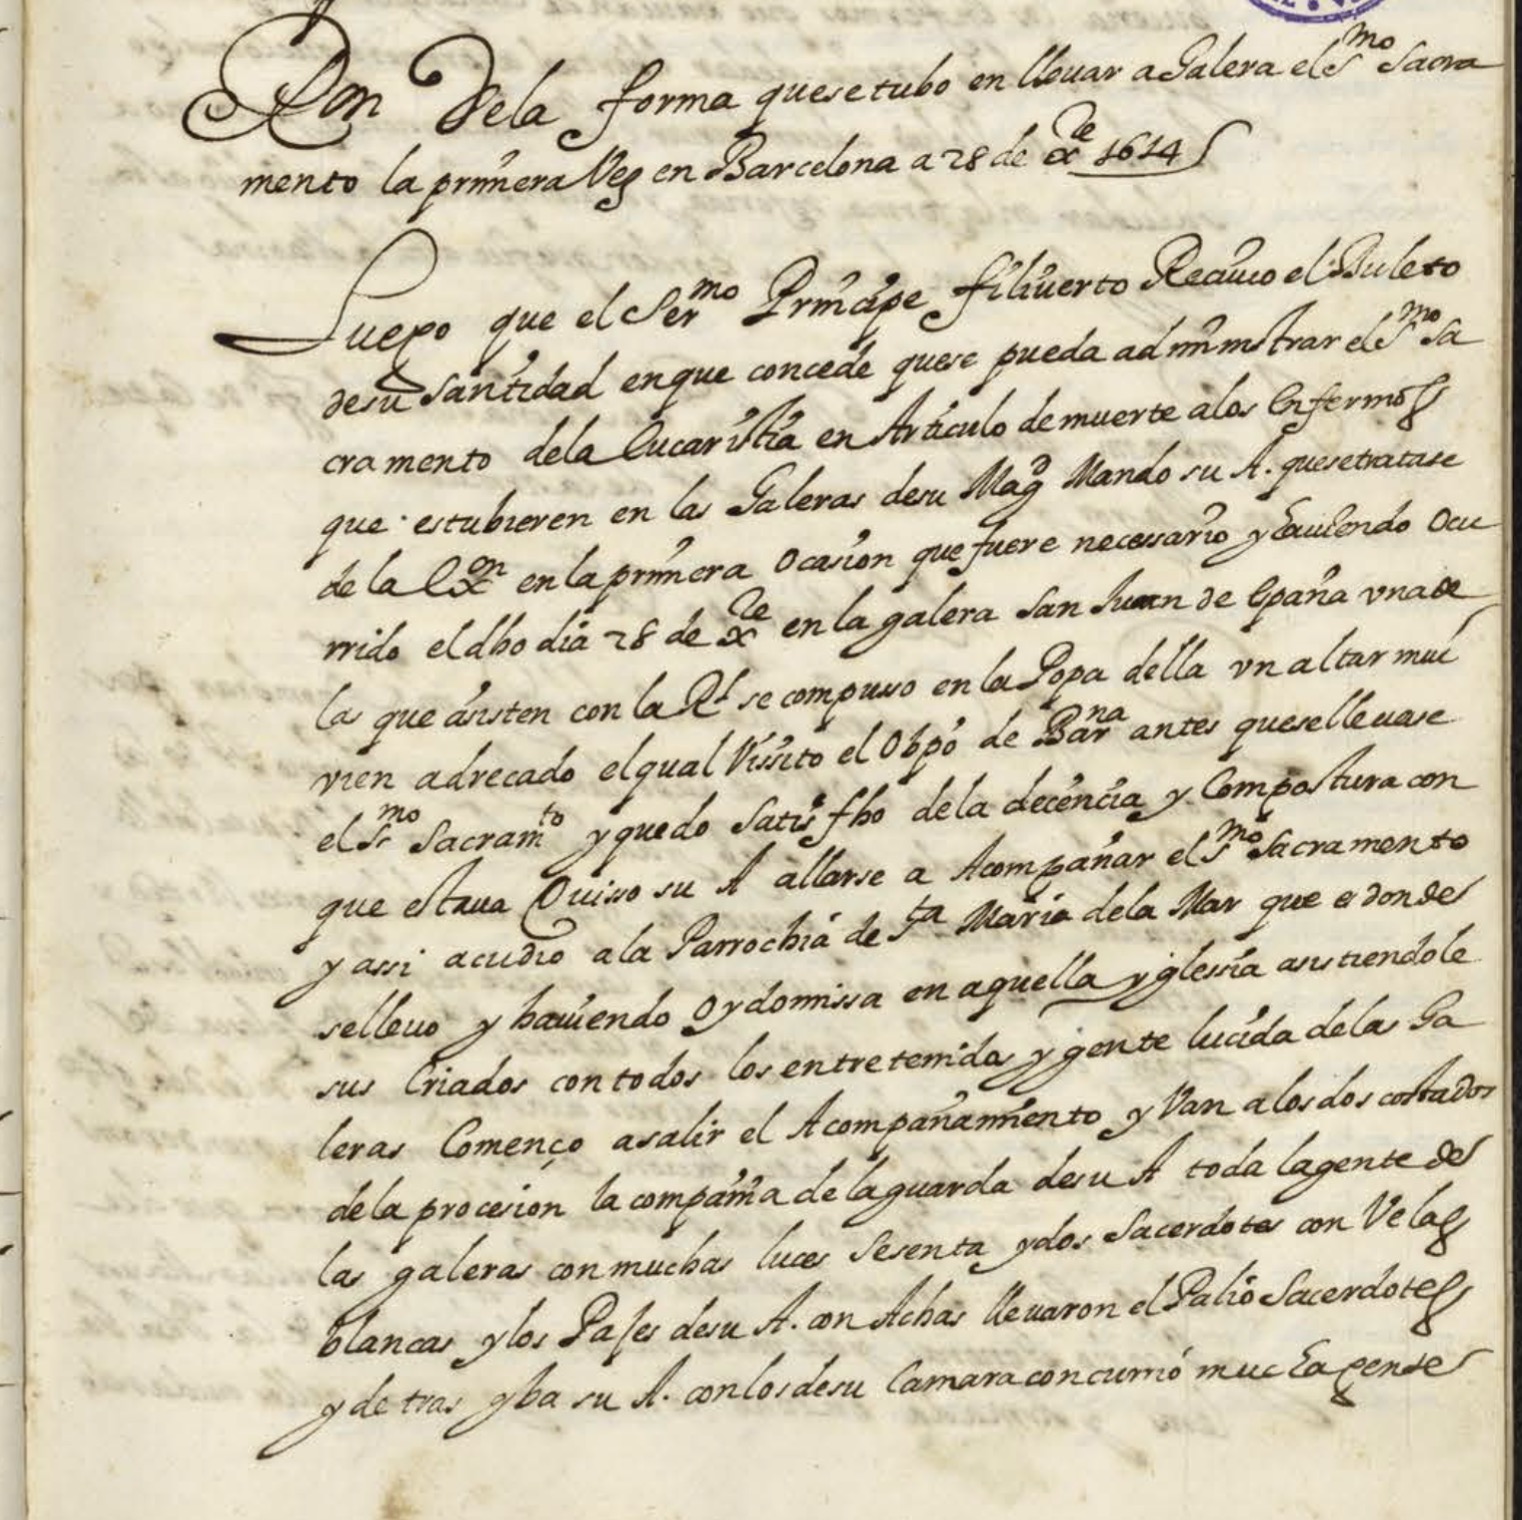 Ron Dela forma que se tubo en lleuar a Galera el Smo Sacra
mento la primera Vez en Barcelona a 28 de xre 1614
Luego que el Sermo Principe filiuerto Reciuio el Buleto
de su Santidad en que concede que se pueda administrar el Smo Sa
cramento de la Eucaristia en Articulo de muerte a los Enfermos
que estubieren en las Galeras de su Magd Mando su A. que se tratase
de la exon en la primera ocasion que fuere necessario y hauiendo Ocu
rrido el dho dia 28 de xre en la galera San Juan de españa vna de
las que asisten con la Rl se compusso en la Popa della vn altar mui
vien adrecado el qual Vissito el Obpo de Barna antes que se lleuase
el Smo Sacramto y quedo Satisfho de la decencia y Compostura con
que estaua Quisso su A allarse a Acompañar el Smo Sacramento
y assi acudio a la Parrochia de Sta Maria de la Mar que es donde
se lleuo y hauiendo Oydo missa en aquella yglessia asistiendole
sus Criados con todos los entretenidos y gente lucida de las Ga
leras Començo a salir el Acompañamiento y Van a los dos costados
de la procesion la compañia de la guarda de su A toda la gente de
las galeras con muchas luces Sesenta y dos Sacerdotes con Velas
blancas y los Pajes de su A. con Achas lleuaron el Palio Sacerdotes
y detras yba su A. con los de su Camara concurrio mucha gente